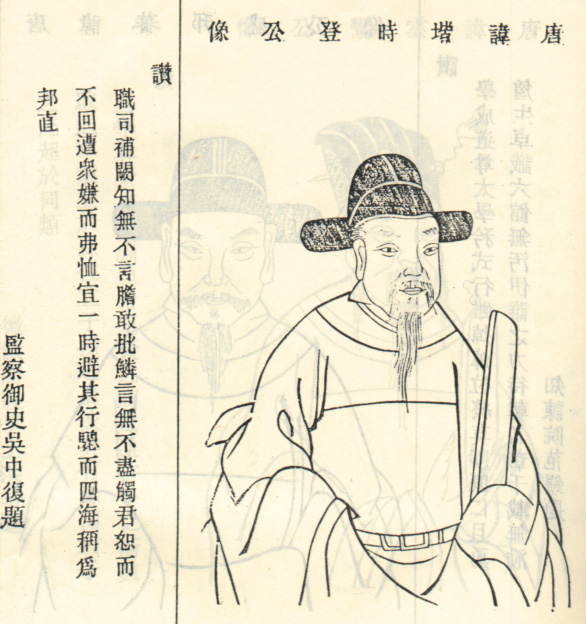 唐諱時登公像
讚
職司補闕知無不言膽敢批鱗言無不盡觸君恕而
不回遭衆嫌而弗恤宜一時避其行驄而四海稱爲
邦直
監察御史吳中復題